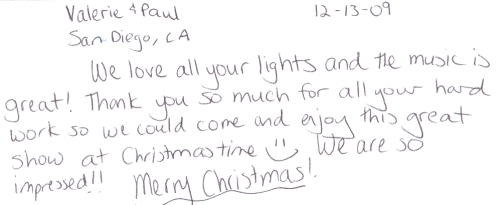 Valerie & Paul 12-13-09
San Diego, CA
We love all your lights and the music is
great! Thank you so much for all your hard
work so we could come and enjoy this great
show at Christmastime We are so
impressed!! Merry Christmas!